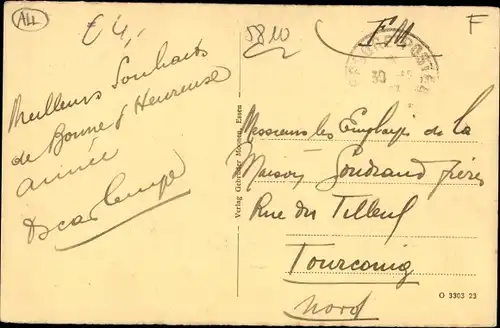 ALL
5810
FM
F
30
Meilleurs Souhaits
de Bonne & Heureuse
année
Oscar
Verlag Gebrüder Moonen, Essen
Messieurs les Employés de la
Maison frères
Rue du Tilleul
Tourcoing
Nord
O 3303 23